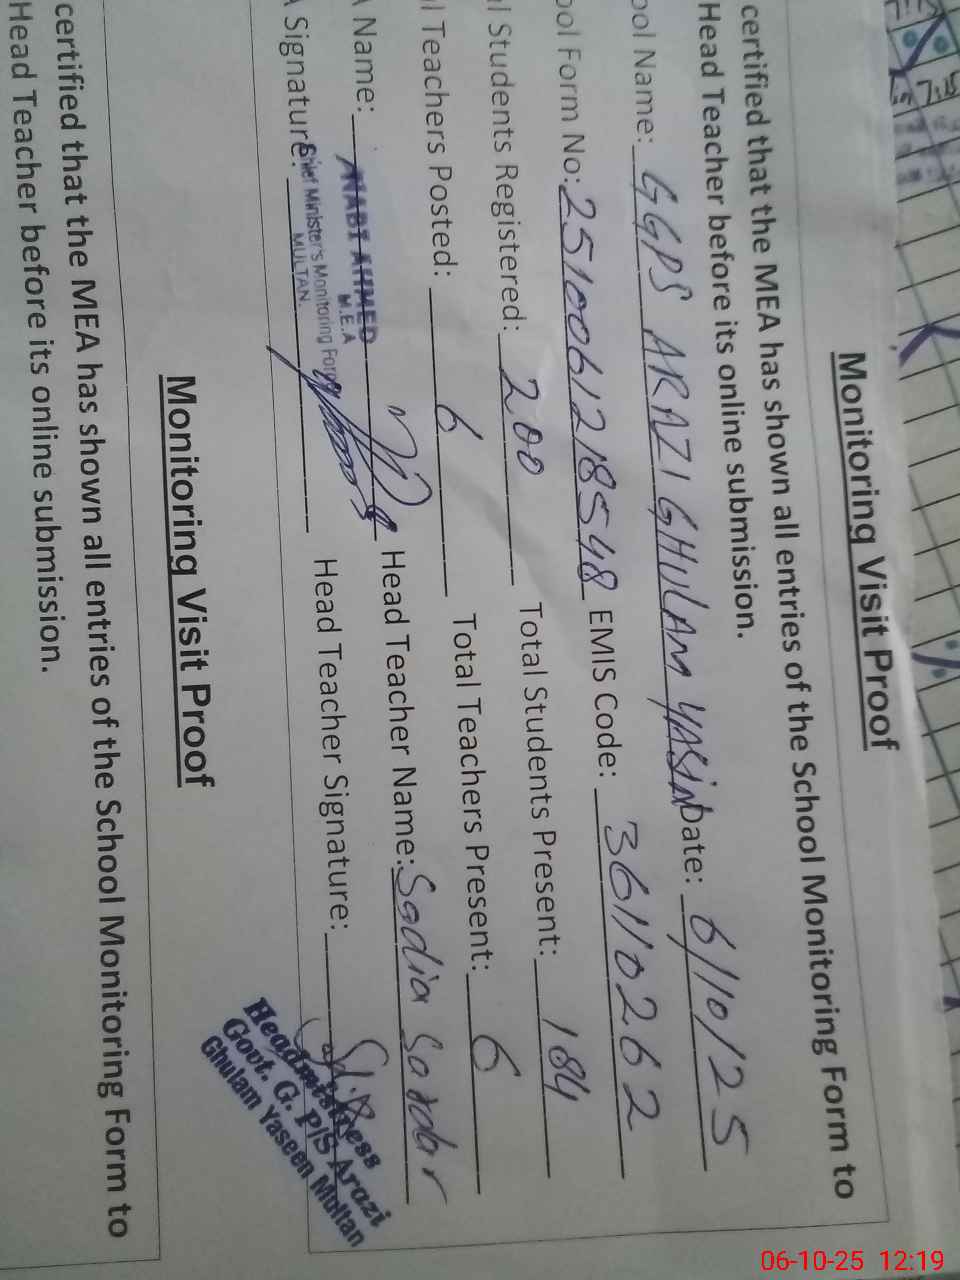 Monitoring Visit Proof
certified that the MEA has shown all entries of the School Monitoring Form to
Head Teacher before its online submission.
ool Name: GGPS ARAZI GHULAM YASIN Date: 6/10/25
ool Form No: 2510061218548 EMIS Code: 36110262
l Students Registered: 200 Total Students Present: 184
l Teachers Posted: 6 Total Teachers Present: 6
A Name: NABI AHMED Head Teacher Name: Sadia Sardar
M.E.A
A Signature: Head Teacher Signature:
Chief Minister's Monitoring Force
MULTAN.
Headmistress
Govt. G. P/S Arazi
Ghulam Yaseen Multan
Monitoring Visit Proof
certified that the MEA has shown all entries of the School Monitoring Form to
Head Teacher before its online submission.
06-10-25 12:19